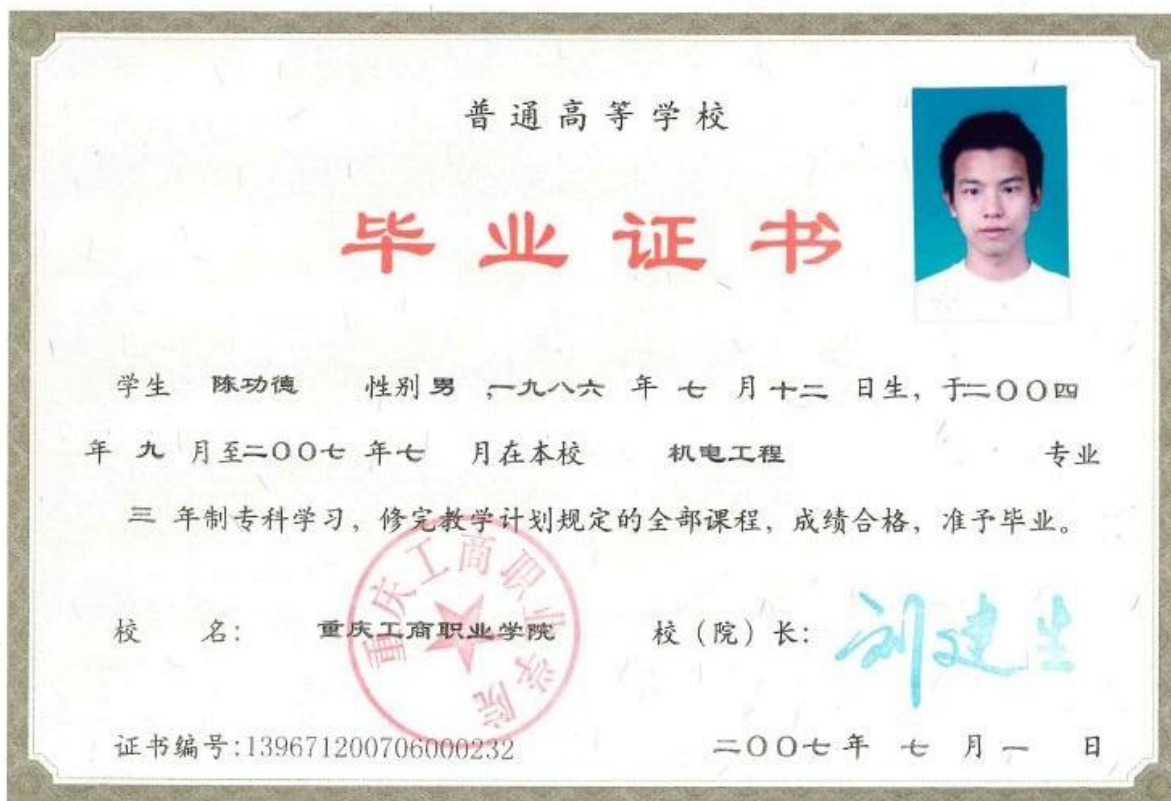 普通高等学校
毕业证书
学生 陈功德 性别 男 ,一九八六 年 七 月 十二 日生, 于二〇〇四
年 九 月至二〇〇七 年 七 月在本校 机电工程 专业
三 年制专科学习, 修完教学计划规定的全部课程, 成绩合格, 准予毕业。
校 名: 重庆工商职业学院 校(院)长: 刘建生
重庆工商职业学院
证书编号:139671200706000232 二〇〇七 年 七 月 一 日